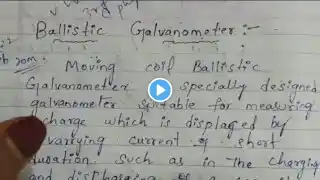 3rd
Ballistic Galvanometer:-
Moving coil Ballistic
Galvanometer is specially designed
galvanometer suitable for measuring
charge which is displaced by
varying current of short
duration. Such as in the charging
and discharging of a